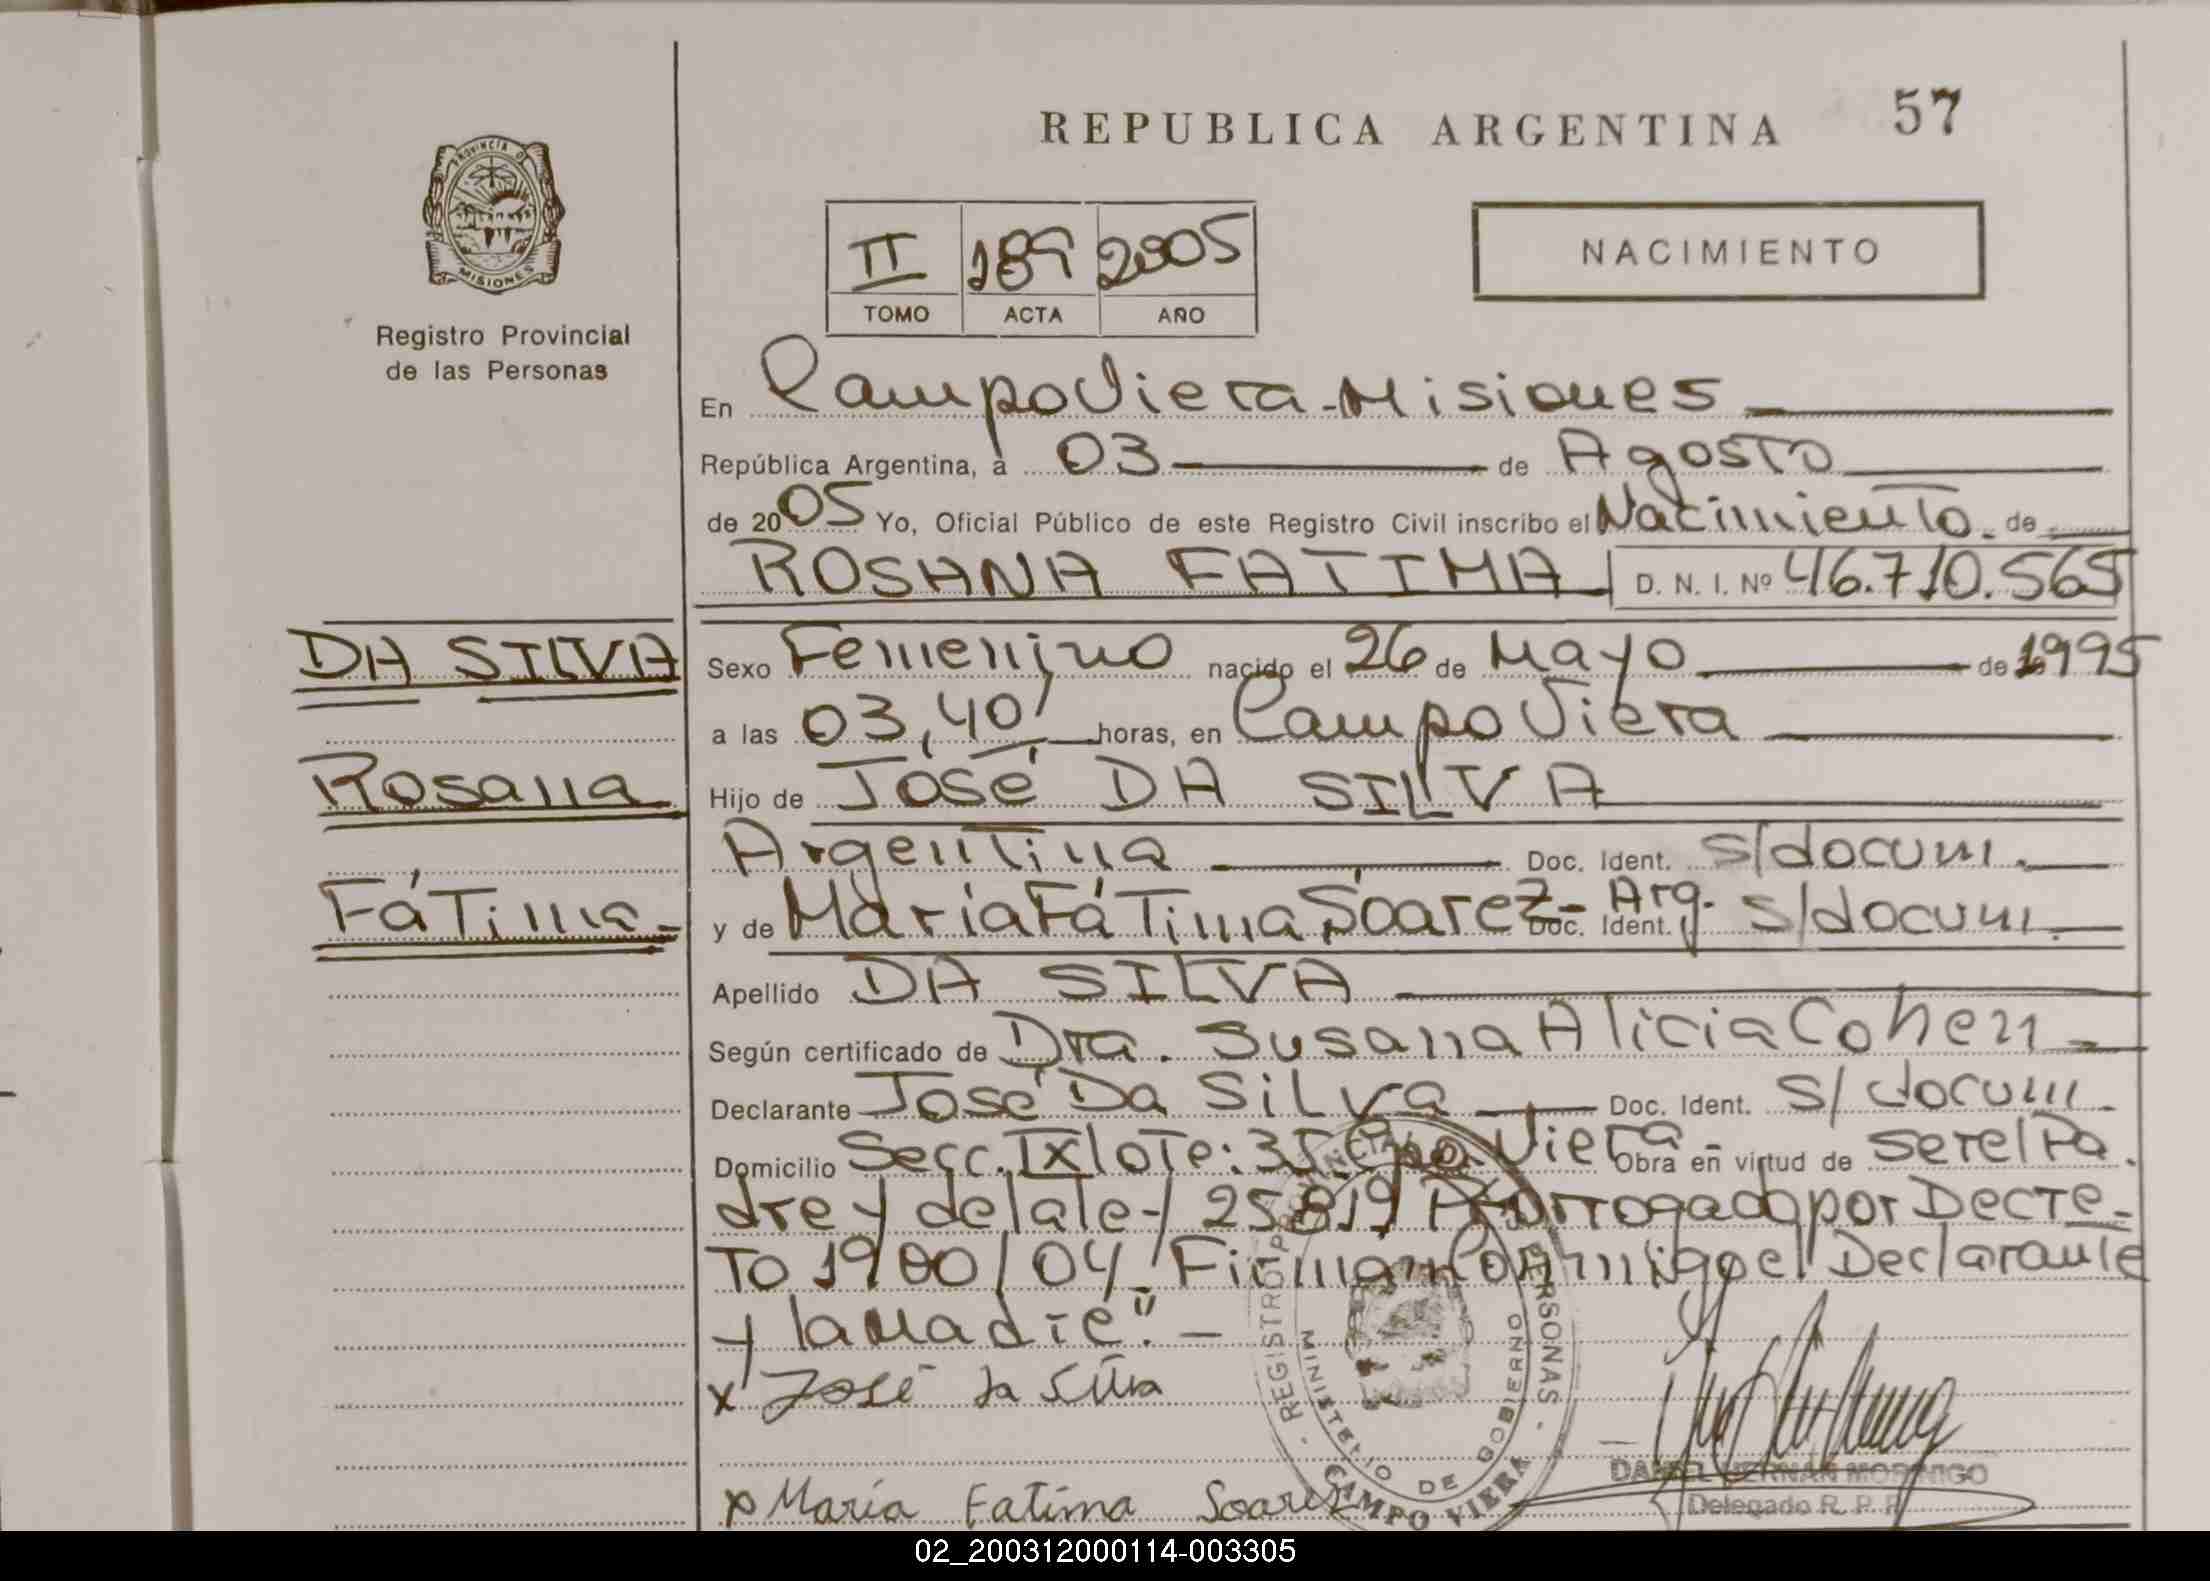 REPUBLICA ARGENTINA
57
PROVINCIA DE
MISIONES
Registro Provincial
de las Personas
II 189 2005
TOMO ACTA AÑO
NACIMIENTO
En Campo Viera - Misiones
República Argentina, a 03 de Agosto
de 2005 Yo, Oficial Público de este Registro Civil inscribo el Nacimiento de
ROSANA FATIMA D. N. I. Nº 46.710.565
DA SILVA
Rosana
Fátima
Sexo Femenino nacido el 26 de Mayo de 1995
a las 03,40 horas, en Campo Viera
Hijo de José DA SILVA
Argentina Doc. Ident. s/docum.
y de María Fátima Soarez - Arg. Doc. Ident. s/docum.
Apellido DA SILVA
Según certificado de Dra. Susana Alicia Cohen
Declarante José Da Silva Doc. Ident. s/docum
Domicilio Secc. IX lote: 35 Cpo. Viera - Obra en virtud de ser el Pa.
dre y de la ley 25819 Prorrogado por Decre-
to 1900/04. Firman Conmigo el Declarante
y la Madre". -
x José da Silva
x María Fatima Soarez
REGISTRO PROVINCIAL DE LAS PERSONAS -
MINISTERIO DE GOBIERNO
CAMPO VIERA
DANIEL HERNAN MORINIGO
Delegado R. P. P.
02_200312000114-003305